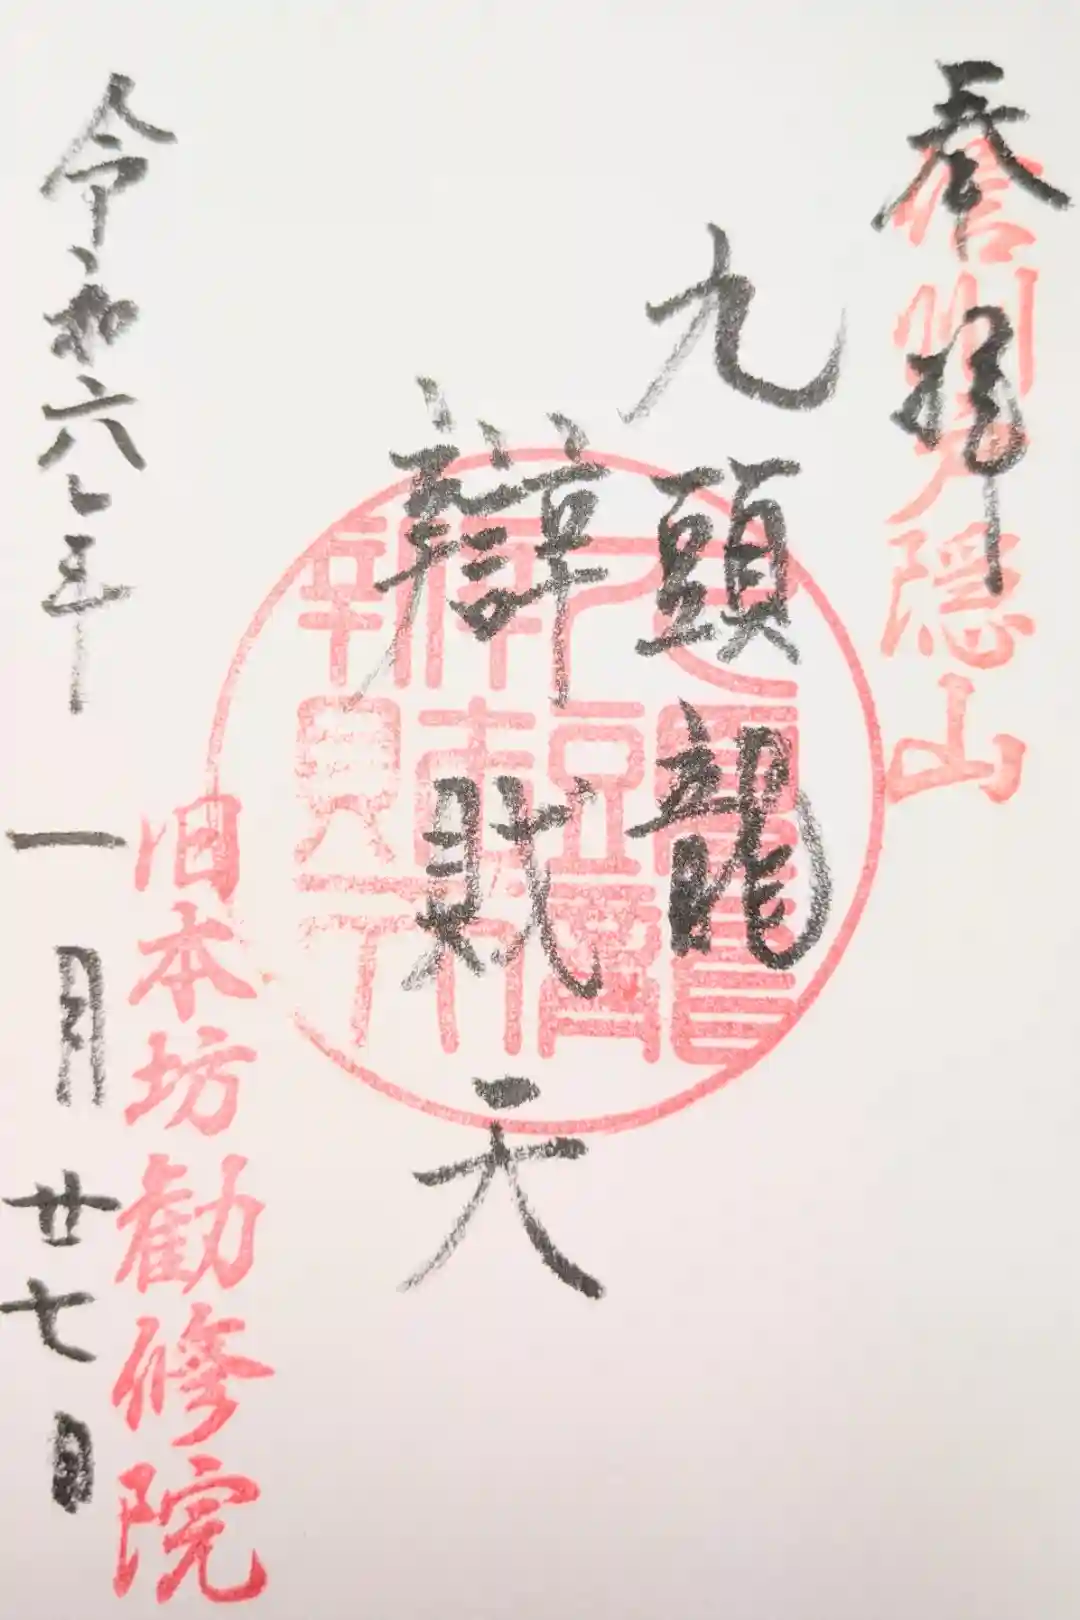 奉拝
信州戸隠山
九頭龍
辯財天
旧本坊勧修院
令和六年一月廿七日